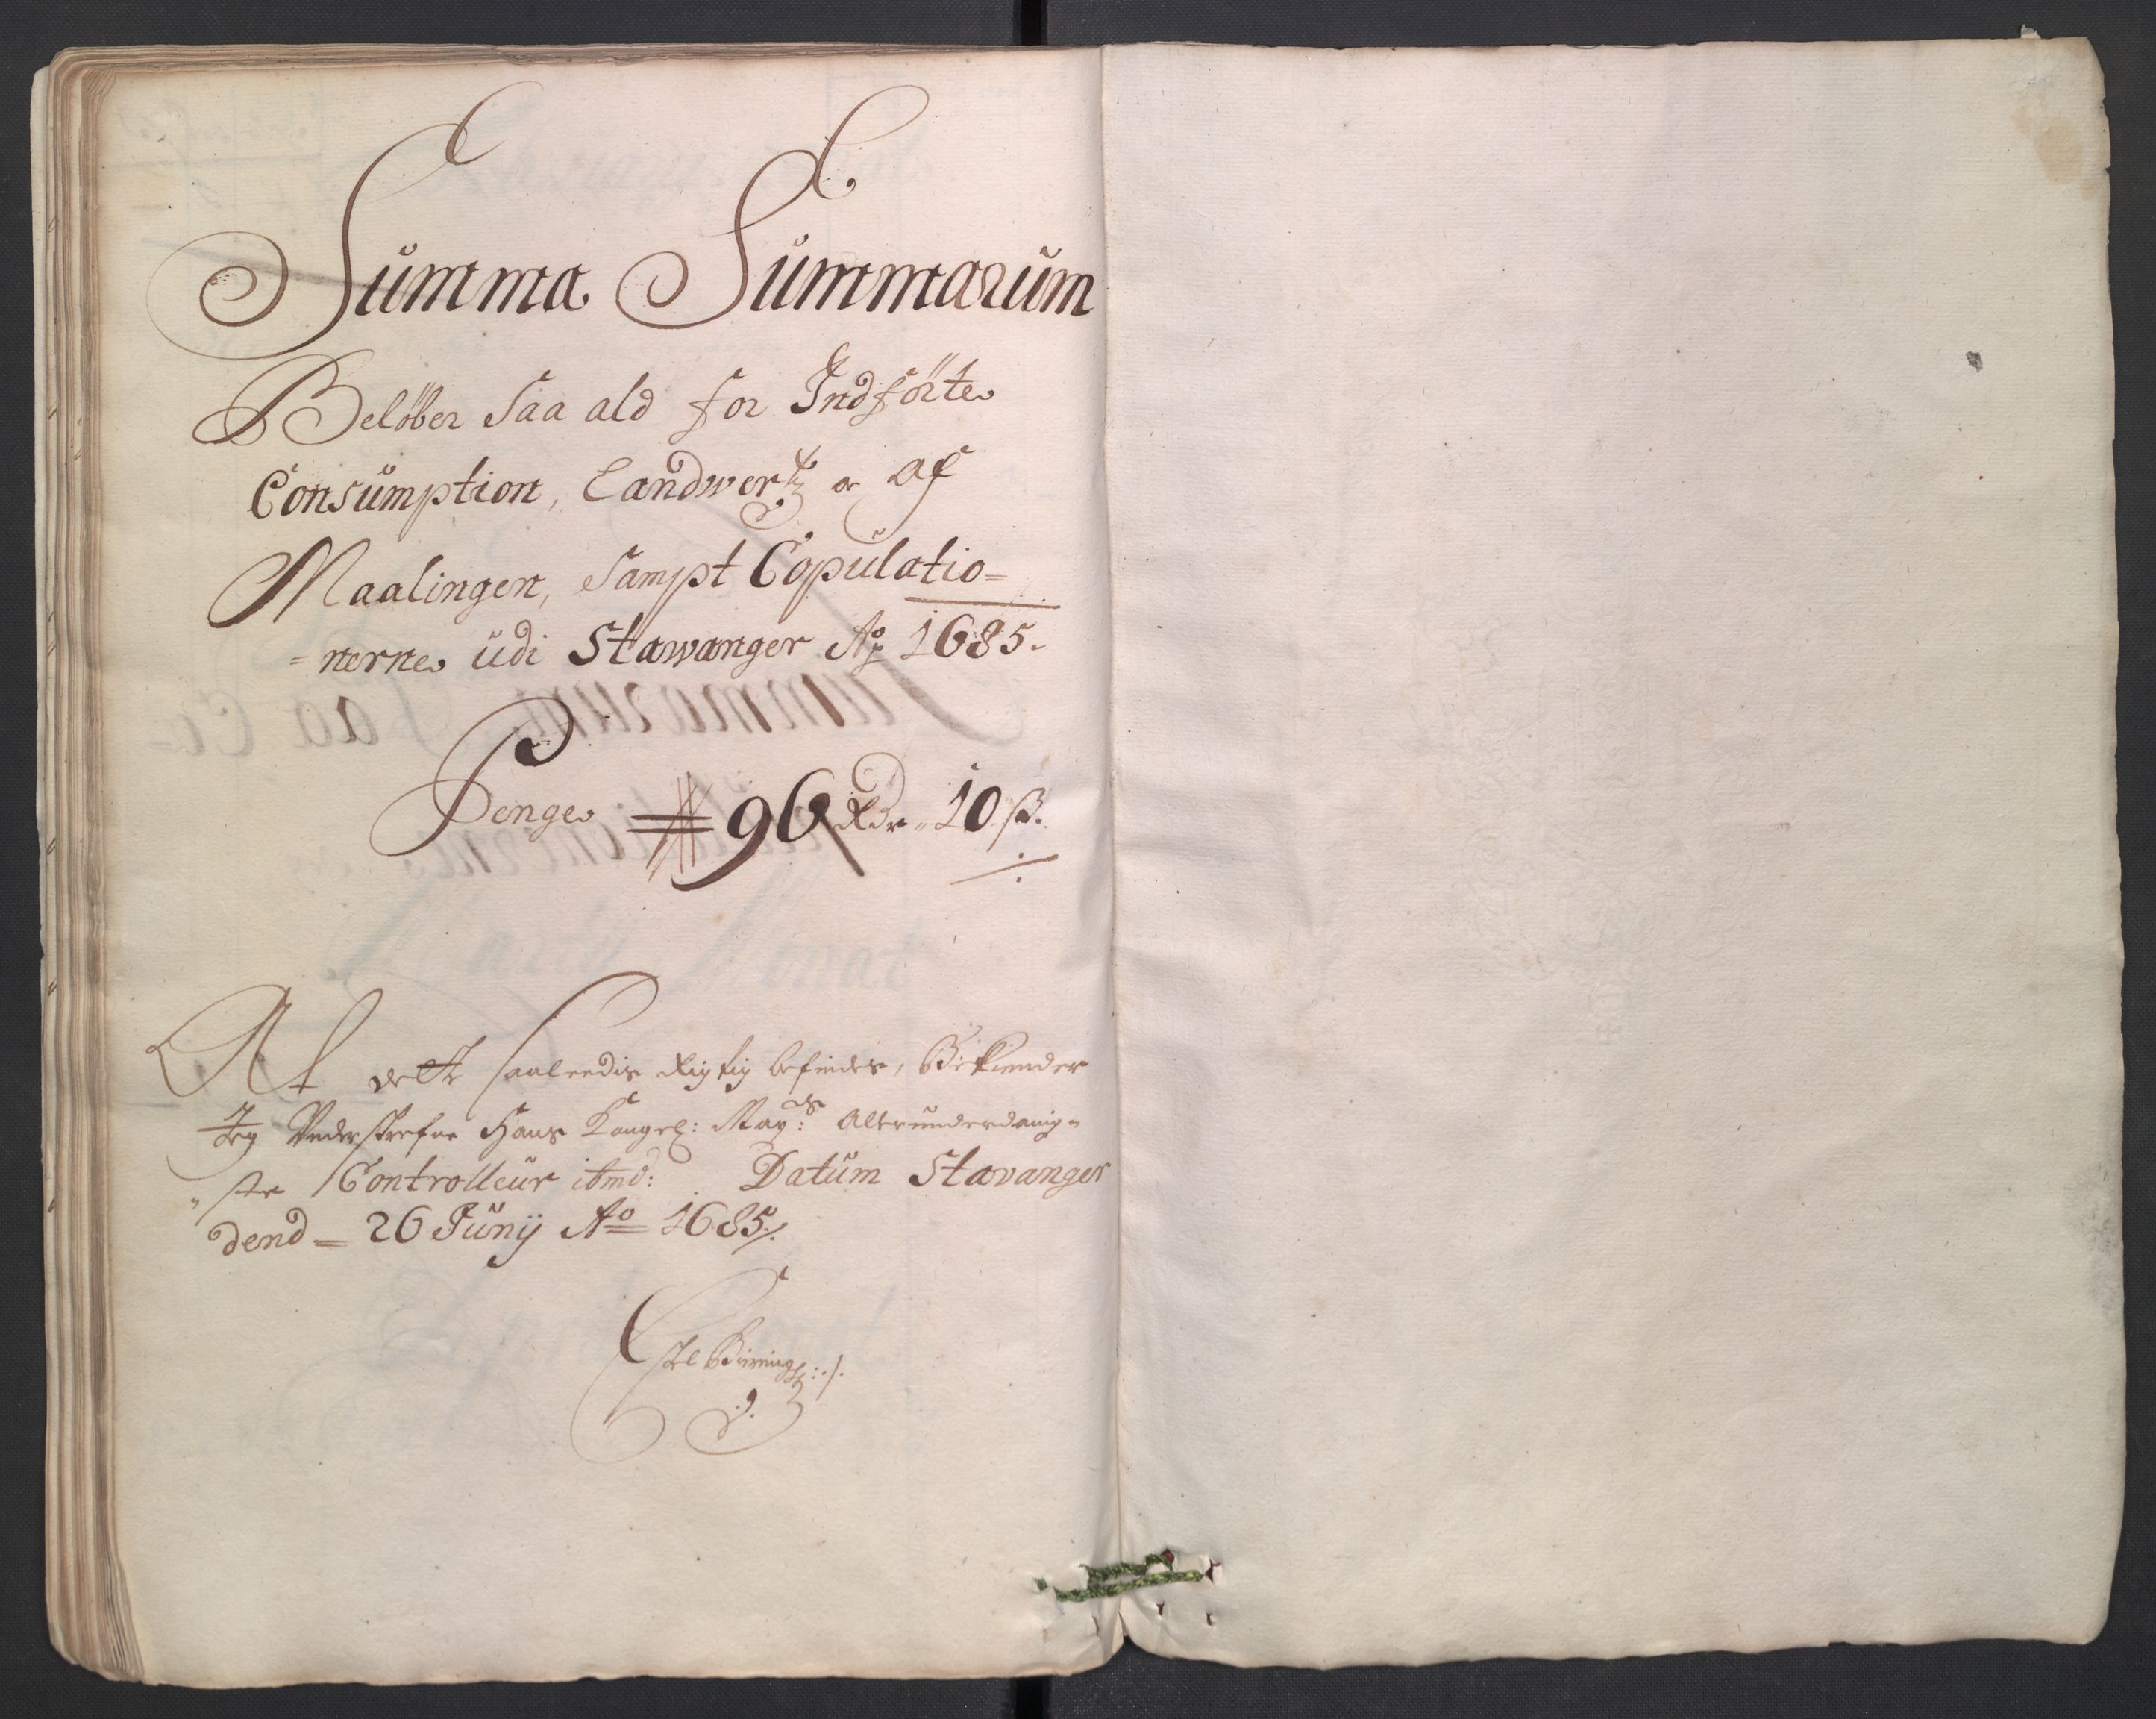 Summa Summarum
Belöber Saa ald for Indförte
Consumption, Landwertz af
Maalingen, Sampt Copulatio=
=nerne udi Stawanger Ao 1685.
Penge 96 Rdr 10 ß.
At dette saaleedis Rigtig befindes, Bekiender
Jeg Underskrefne Hans Kongel: May:ts Allerunderdanig=
"ste Controlleur ibmd: Datum Stavanger
dend = 26 Junij Ao 1685.